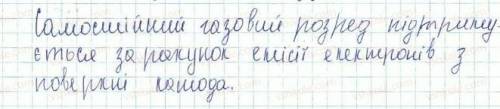 Самостійний газовий розряд підтриму-
ється за рахунок емісії електронів з
поверхні катода.